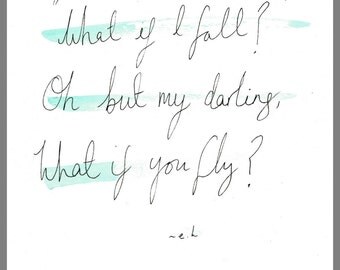 "What if I fall?
Oh but my darling,
What if you fly?
~e.h